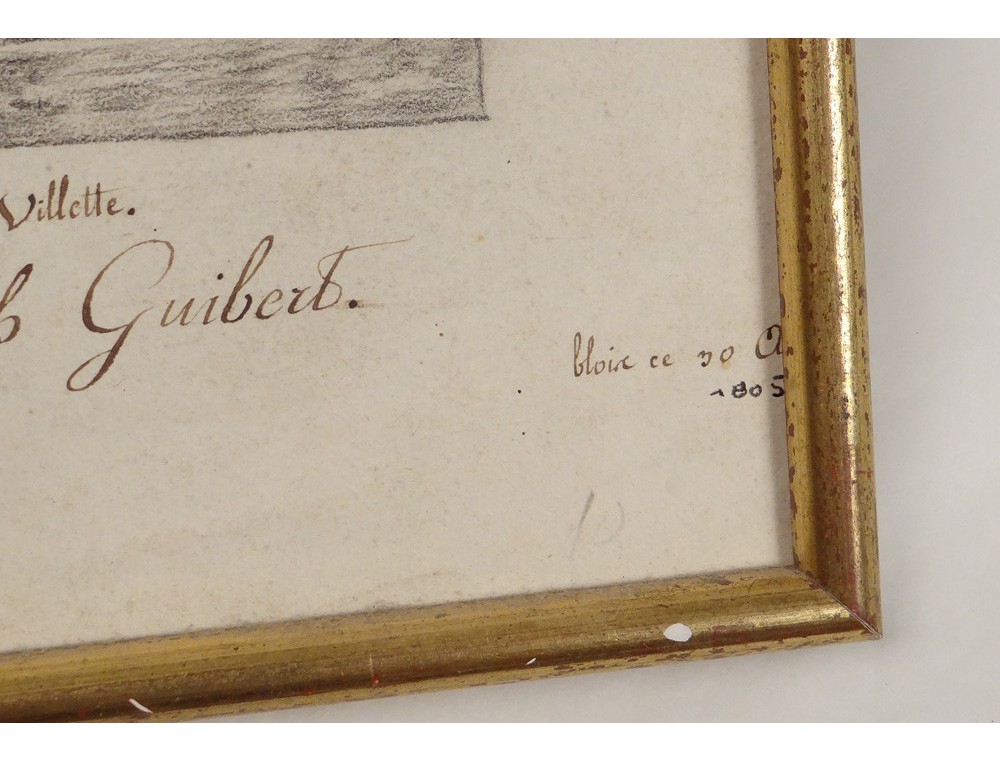 Villette.
Guibert.
bloix ce 30
1805